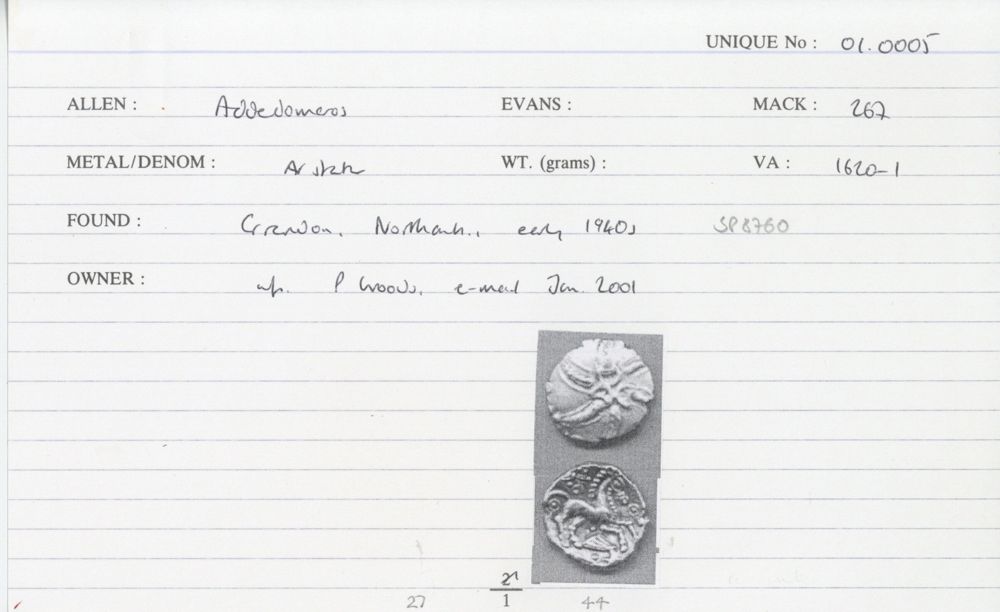 UNIQUE No : 01.0005
ALLEN : Addedomaros EVANS : MACK : 267
METAL/DENOM : AV stater WT. (grams) : VA : 1620-1
FOUND : Grendon, Northants., early 1940s SP8760
OWNER : inf. P Woods, e-mail Jan. 2001
21
27 1 44